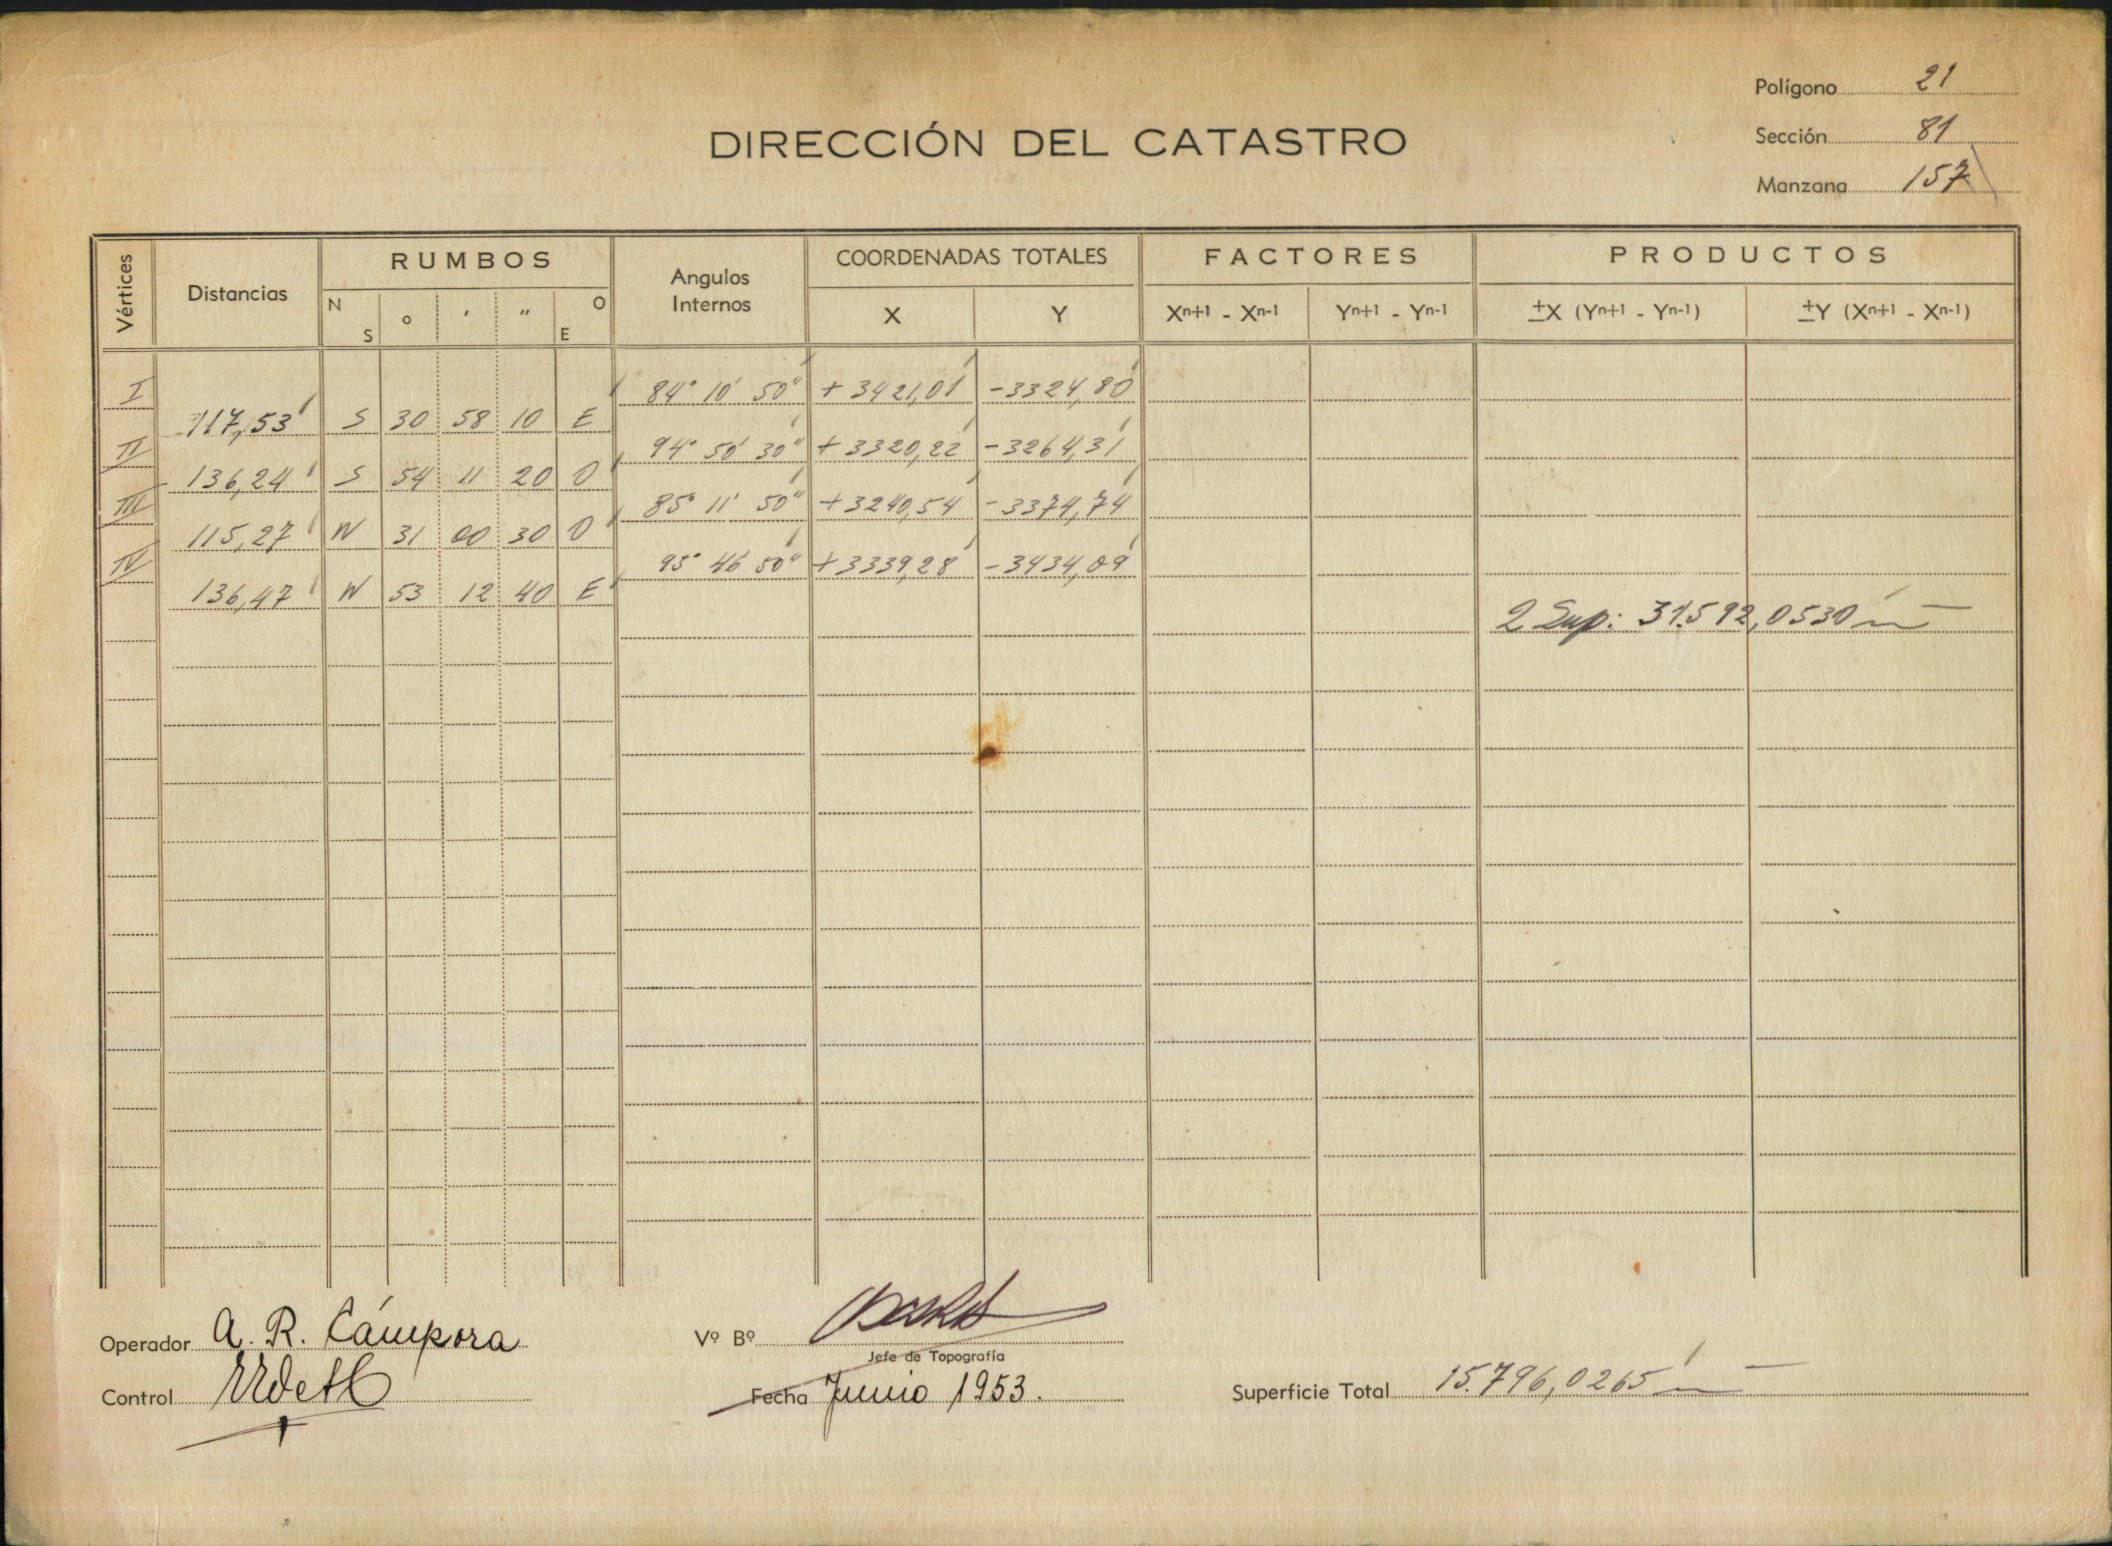 Polígono 21
DIRECCIÓN DEL CATASTRO
Sección 81
Manzana 157
Vértices Distancias RUMBOS Angulos Internos COORDENADAS TOTALES FACTORES PRODUCTOS
N S o ' " O E X Y Xn+1 - Xn-1 Yn+1 - Yn-1 ±X (Yn+1 - Yn-1) ±Y (Xn+1 - Xn-1)
I 84° 10' 50" + 3421,01 -3324,80
117,53 S 30 58 10 E
II 94° 50' 30" + 3320,22 -3264,31
136,24 S 54 11 20 O
III 85° 11' 50" +3240,54 -3374,74
115,27 N 31 00 30 O
IV 95° 46' 50" +3339,28 -3434,09
136,47 N 53 12 40 E
2 Sup: 31.592,0530 m
Operador A. R. Cámpora
Vº Bº
Jefe de Topografía
Control
Fecha Junio 1953.
Superficie Total 15.796,0265 m